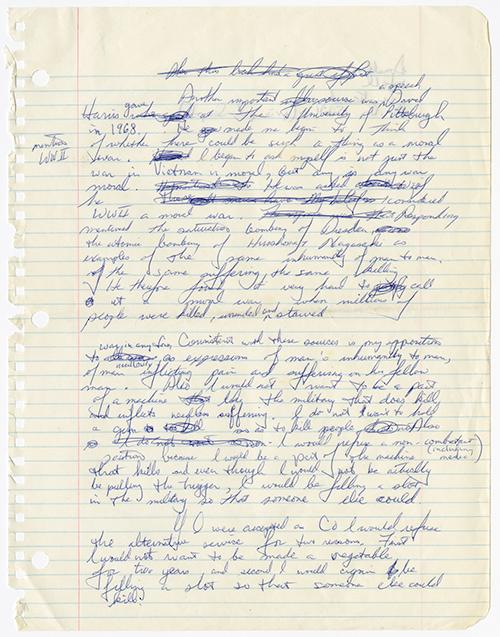 Another important was a speech David
Harris gave at The University of Pittsburgh
in 1968. He made me begin to think
of whether there could be such a thing as a moral
mentions WW II
war. I began to ask myself is not just the
war in Vietnam moral, but any war
moral. He was asked if
he considered
WWII a moral war. Responding
mentioned the saturation bombing of Dresden,
the atomic bombing of Hiroshima & Nagasaki as
examples of the same inhumanity of man to man,
of the same suffering, the same killing.
He therefore found it very hard to call
it a moral war when millions of
people were killed, wounded and starved.
Consistent with these sources is my opposition
to war in any form, as expressions of man's inhumanity to man,
of man inflicting pain and suffering on his fellow
man. Also I would not want to be a part
of a machine like the military that does kill
and inflicts needless suffering. I do not want to hold
a gun to kill people. Also
I would refuse a non-combatant
position (including medic) because I would be a part of the machine
that kills and even though I would not be actually
be pulling the trigger, I would be filling a slot
in the military so that someone else could
If I were accepted as CO I would refuse
the alternative service for two reasons. First
I would not want to be made a vegetable
for two years and second I would again be
filling a slot so that someone else could
kill.